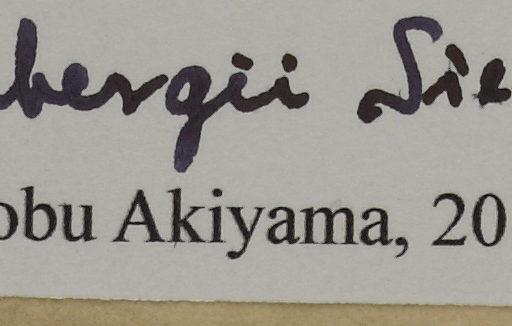 bergii Sie
obu Akiyama, 20